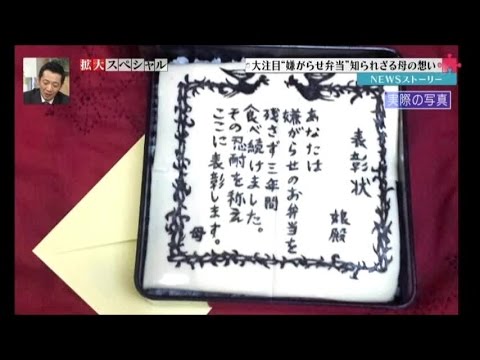 拡大スペシャル
大注目“嫌がらせ弁当”知られざる母の想い
NEWSストーリー
実際の写真
表彰状
娘殿
あなたは
嫌がらせのお弁当を
残さず三年間
食べ続けました。
その忍耐を称え
ここに表彰します。
母